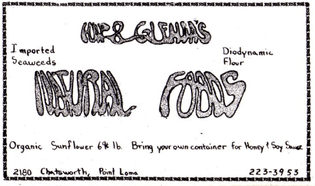 & GLENNA'S
Imported Seaweeds
Diodynamic Flour
NATURAL FOODS
Organic Sunflower 69¢ lb. Bring your own container for Honey & Soy Sauce
2180 Chatsworth, Point Loma 223-3953